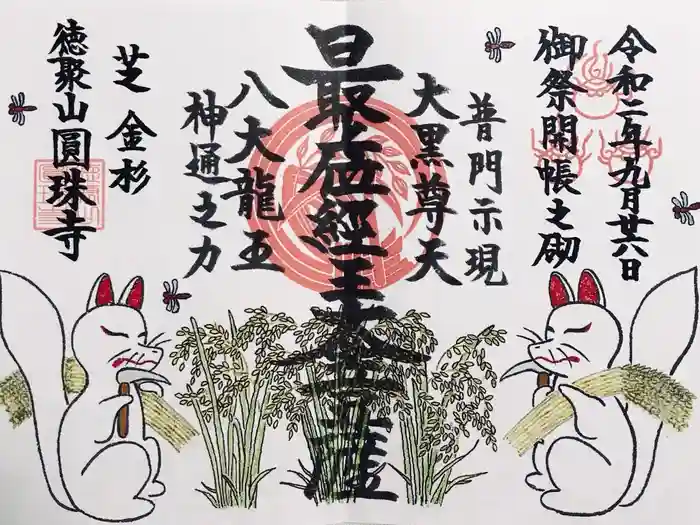 令和二年九月廿六日
御祭開帳之砌
普門示現
大黒尊天
最上位経王大菩薩
八大龍王
神通之力
芝金杉
徳聚山圓珠寺